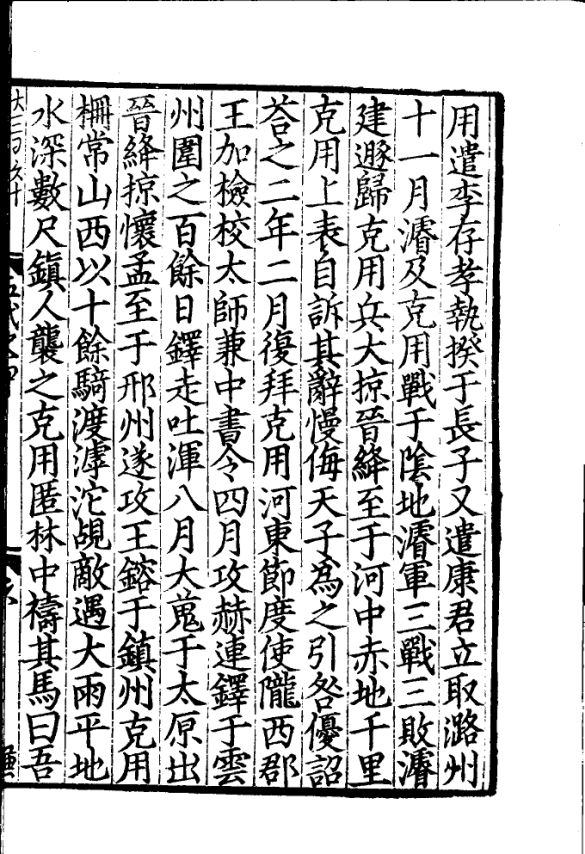 用遣李存孝執揆于長子又遣康君立取潞州
十一月濬及克用戰于陰地濬軍三戰三敗濬
建遯歸克用兵大掠晉絳至于河中赤地千里
克用上表自訴其辭慢侮天子為之引咎優詔
荅之二年二月復拜克用河東節度使隴西郡
王加檢校太師兼中書令四月攻赫連鐸于雲
州圍之百餘日鐸走吐渾八月大蒐于太原出
晉絳掠懷孟至于邢州遂攻王鎔于鎮州克用
柵常山西以十餘騎渡滹沱覘敵遇大雨平地
水深數尺鎮人襲之克用匿林中禱其馬曰吾